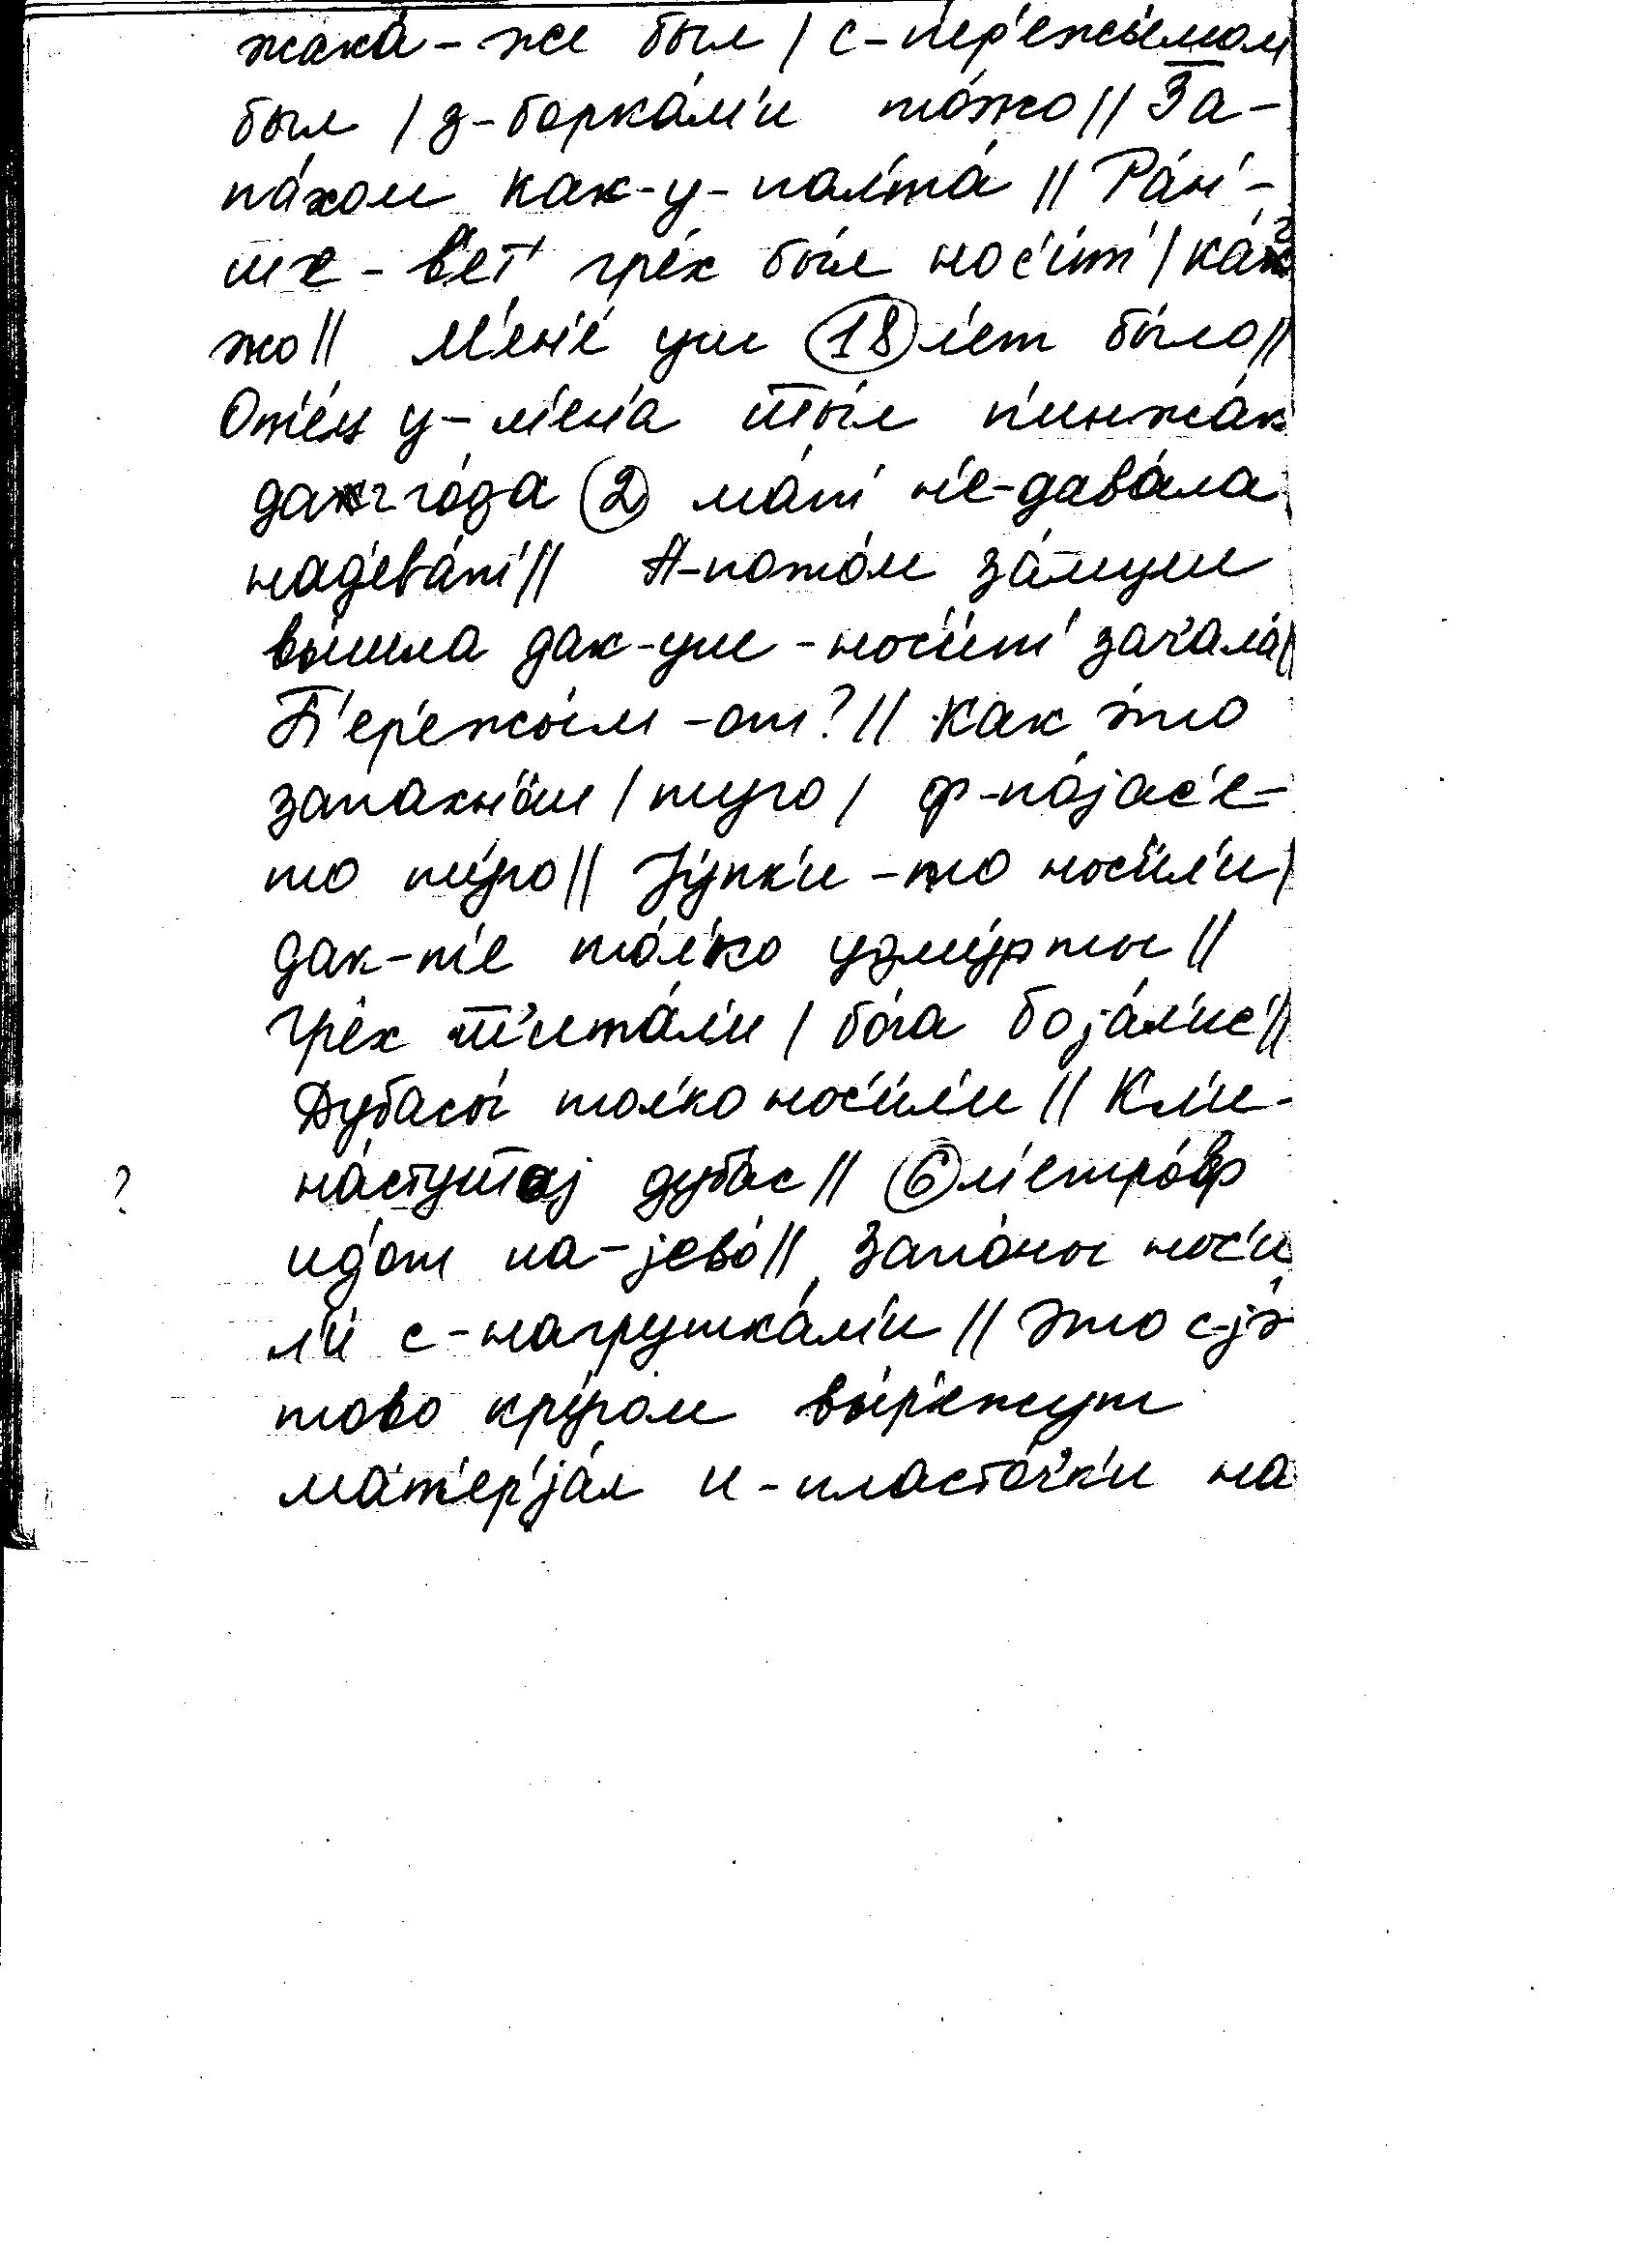 жака́-же был / с-пер'ежы́мом
был / з-борка́м'и то́жо // За-
па́хом как-у-пал'та́ // Ра́н'-
ше-в'ет' гр'е́х бы́л нос'и́т' / ка́к
жо // М'ен'е́ уш 18 л'ет бы́ло //
От'е́ц у-м'ен'а́ шы́л п'инжа́к
дак го́да 2 ма́т' н'е-дава́ла
над'ева́т' // А-пото́м за́муш
вы́шла дак-уш-нос'и́т' зач'ала́ //
П'ер'ежы́м-от? // Как э́то
запахн'о́ш / туго / ф-по́јас'е-
то ту́го // Јупк'и-то нос'и́л'и /
дак-т'е то́л'ко удму́рты //
Гр'е́х шшита́л'и / бо́га боја́л'ис' //
Дубасы́ тол'ко нос'и́л'и // Кл'и-
на́стушој дуба́с // 6 м'етро́ф
ид'о́т на-јево́ // Запо́ны нос'и
л'и с-нагрушка́м'и // Это с-јэ́
тово кру́гом вы́р'ежут
мат'ер'ја́л и-пласто́ч'к'и на
?